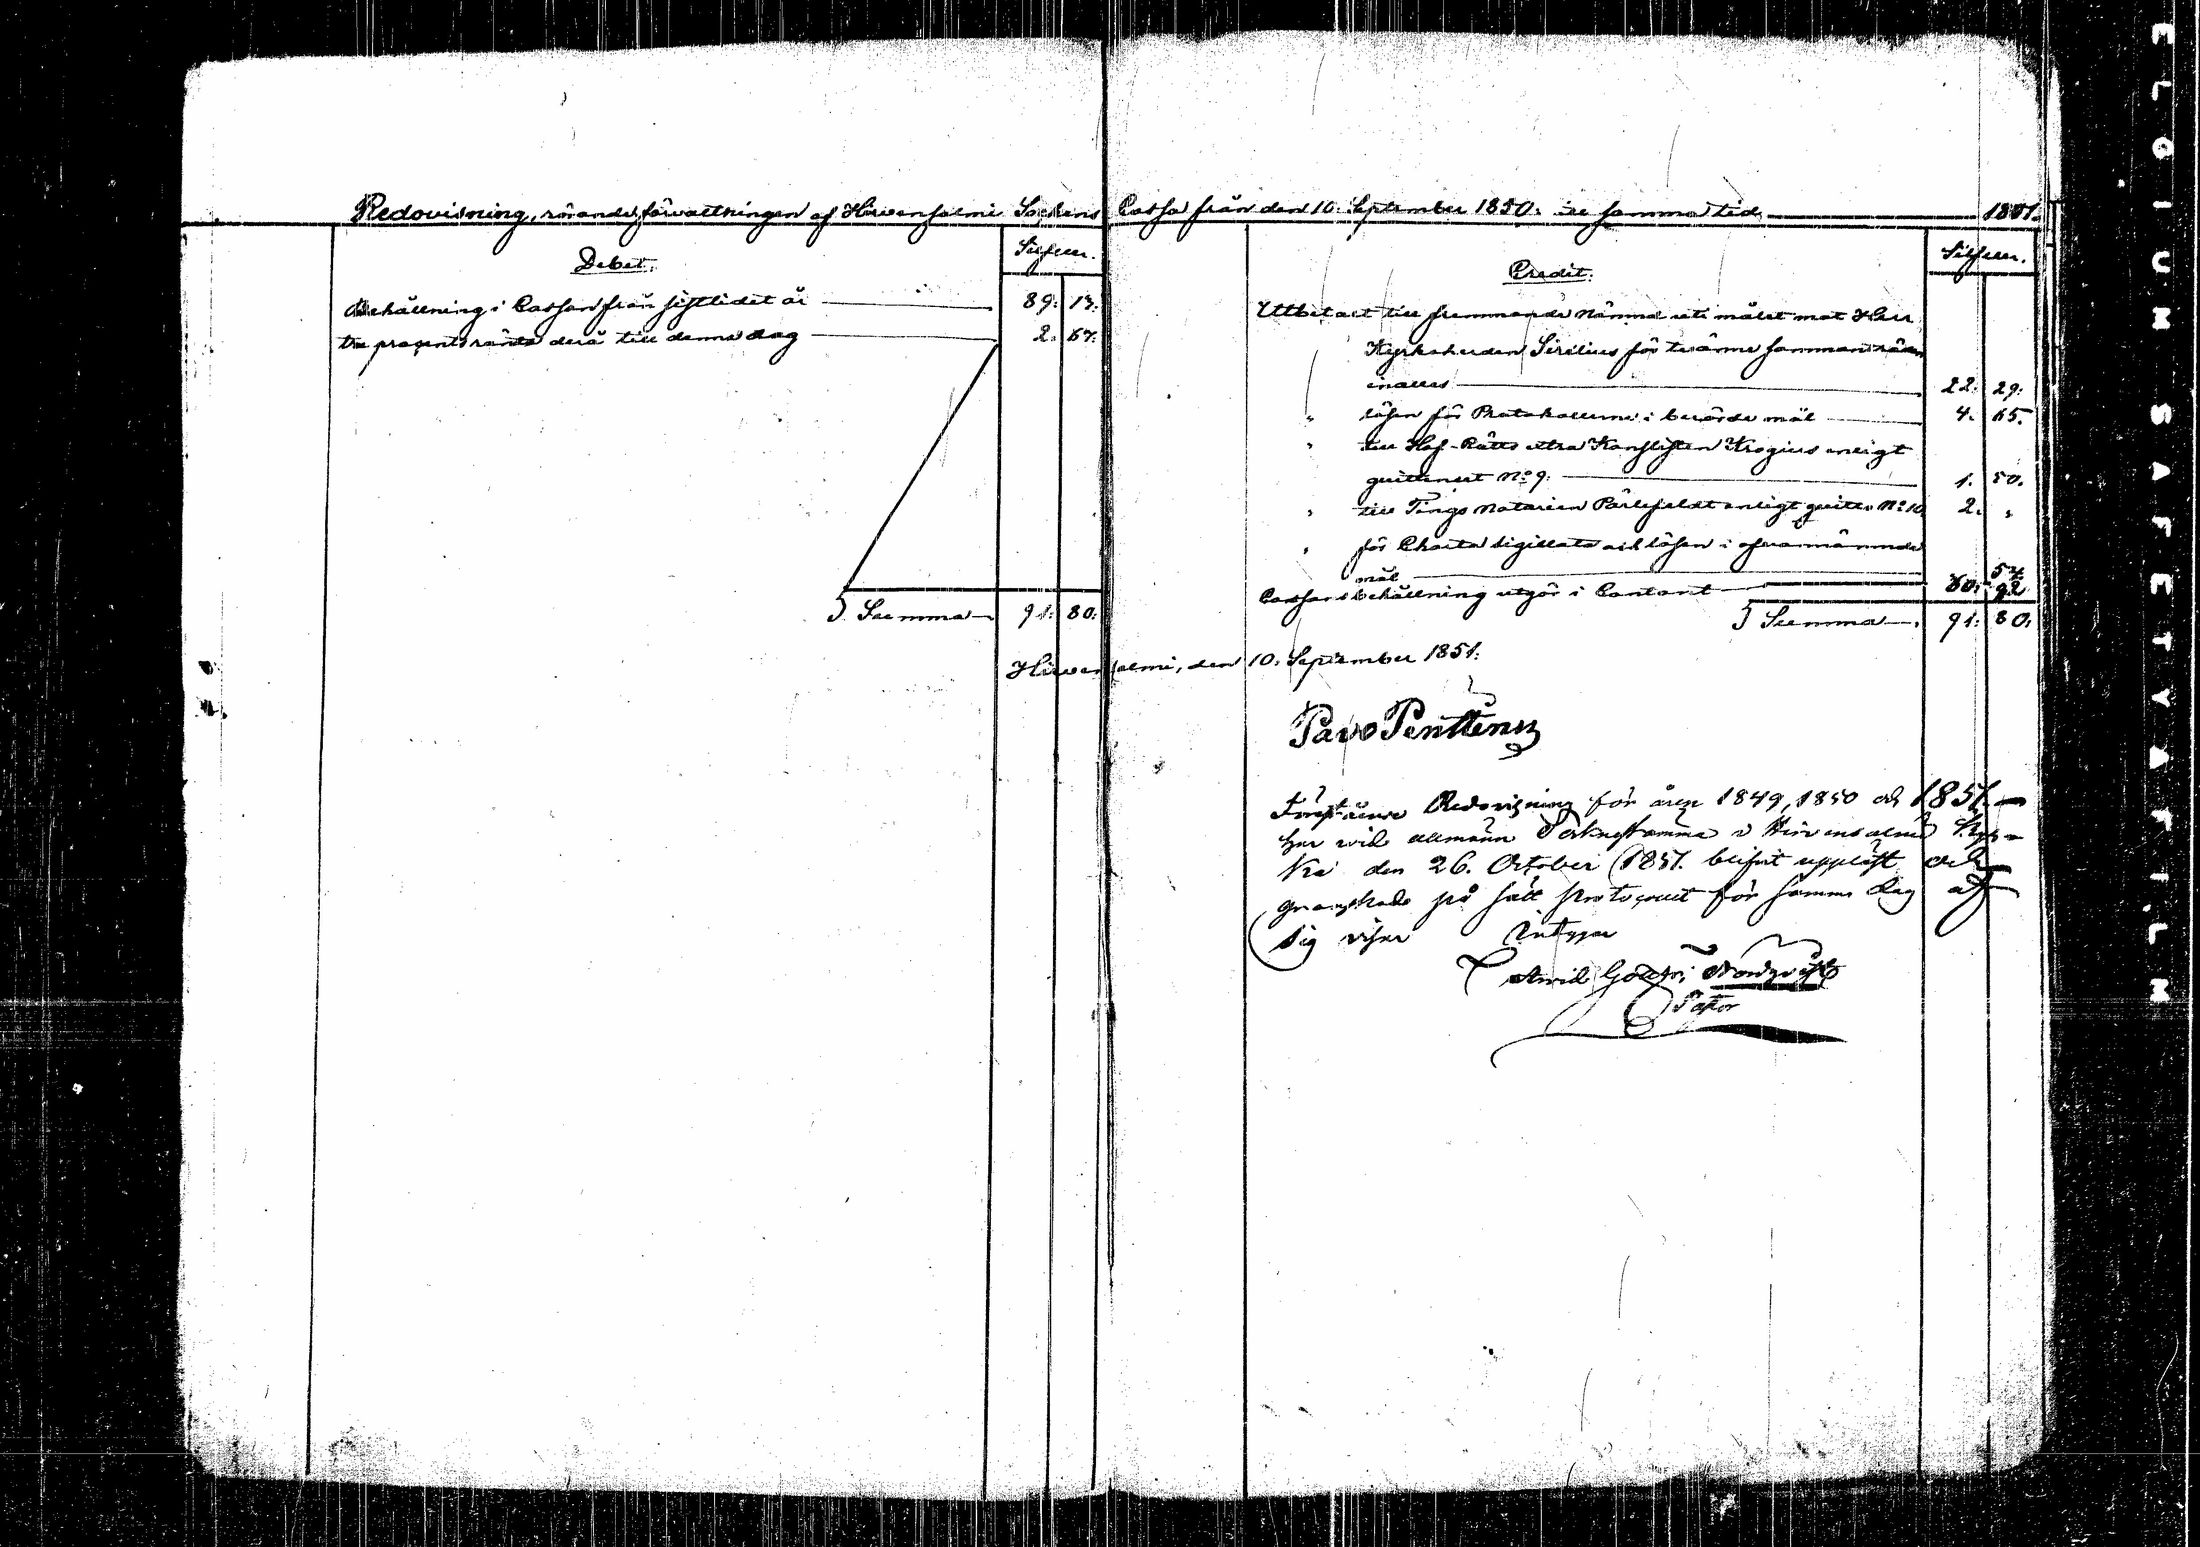 Redovisning, rörande förvaltningen af Hirvensalmi Sockens Cassa från den 10. September 1850. till samma tid 1851.
Debet.
Silfver.
Behållning i Cassan från sistlidet år 89. 13.
tre procents ränta derå till denna dag 2. 67.
Summa 91. 80.
Credit.
Silfver.
Utbetalt till främmande Nämnd uti målet mot Herr
Kyrkoherden Sirelius för tvänne sammanträden
22. 29.
" lösen för Protokollerne i berörde mål 4. 65.
" till Hof-Rätts extra Kanslisten Krogius enligt
quittencet No 9. 1. 50.
" till Tings Notarien Pärlefeldt enligt quitto No 10. 2. "
" för Charta Sigillata och lösen i ofvannämnde
mål 54
Cassans behållning utgör i Contant 60. 92
Summa 91. 80.
Hirvensalmi, den 10. September 1851.
Pavo Penttinen
Förestående Redovisning för åren 1849, 1850 och 1851
har vid allmänn Sockenstämma i Hirvensalmi Kyr-
ka den 26. October 1851. blifvit uppläst och
granskade på sätt Protocollet för samma dag
sig viser intygar
Arvid Gottfri Nordqvist
Pastor
ELGIUM SAFETY A FILM